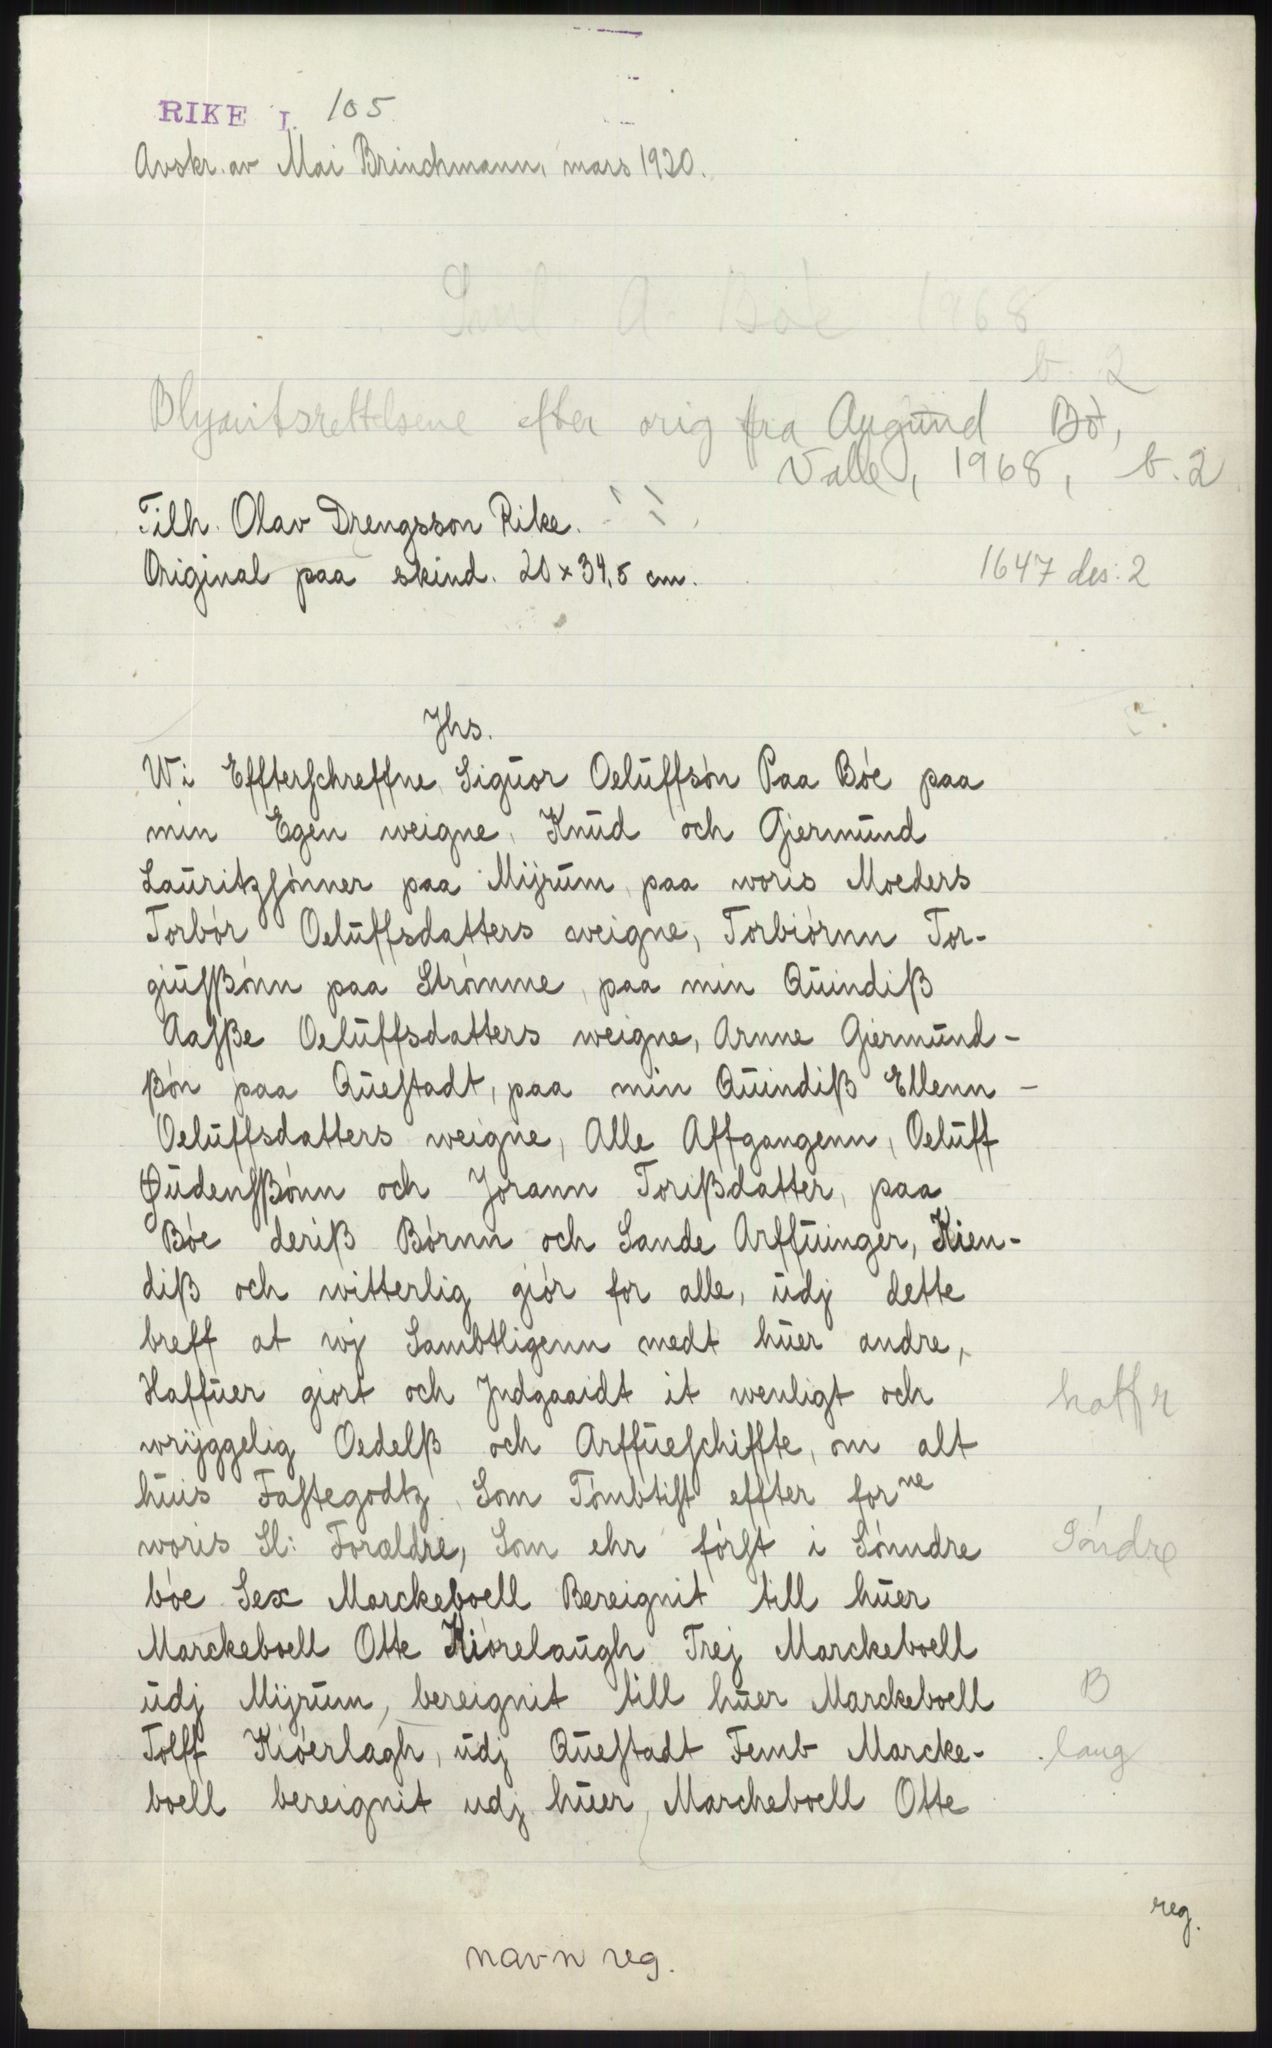 RIKE I. 105
Avskr. av Mai Brinchmann, mars 1920.
A. Bóe 1968
b. 2
Blyantsrettelsene efter orig fra Augund Bø,
Valle, 1968, b. 2
Tilh. Olav Drengsson Rike.
Original paa skind. 20 x 34,5 cm.
1647 des: 2
Jhs.
Wi Effterschreffne Siguor Oeluffsón Paa Bóe paa
min Egen weigne, Knud och Giermund
Lauritzsónner paa Mijrum, paa woris Moeders
Torbór Oeluffsdatters weigne, Torbiórnn Tor-
giusßónn paa Strómme, paa min Quindiß
Aasße Oeluffsdatters weigne, Arnne Giermund-
ßón paa Questadt, paa min Quindiß Ellenn -
Oeluffsdatters weigne, Alle Affgangenn, Oeluff
Gudensßónn och Jorann Torißdatter, paa
Bóe deriß Bórnn och Sande Arffuinger, Kien-
diß och witterlig giór for alle, udj dette
breff at wj Sambtligenn medt huer andre,
Haffuer giort och Jndgaaidt it wenligt och haffr
wrijggelig Oedelß och Arffueschiffte, om alt
huis Fastegodtz, Som Tómbtist effter forne
woris Sl: Foraldre, Som ehr fórst i Sónndre Sóndre
bóe Sex Marckeboell Bereignit till huer
Marckeboell Otte Kiórelaugh Trej Marckeboell
udj Mijrum, bereignit till huer Marckeboell B
Tolff Kióerlagh, udj Questadt Femb Marcke- laug
boell bereignit udj huer Marckeboell Otte
reg.
navn reg.